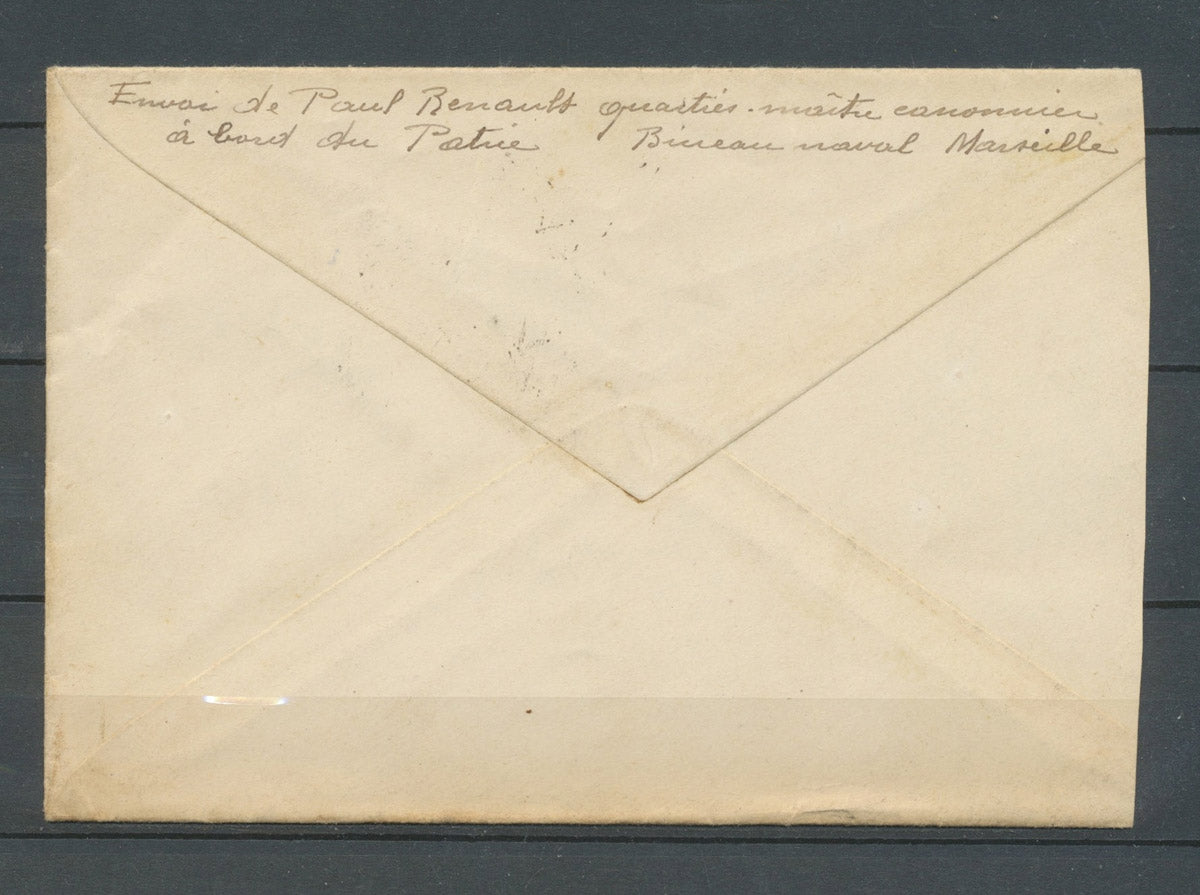 Envoi de Paul Renault quartier-maître canonnier
à bord du Patrie Bureau naval Marseille